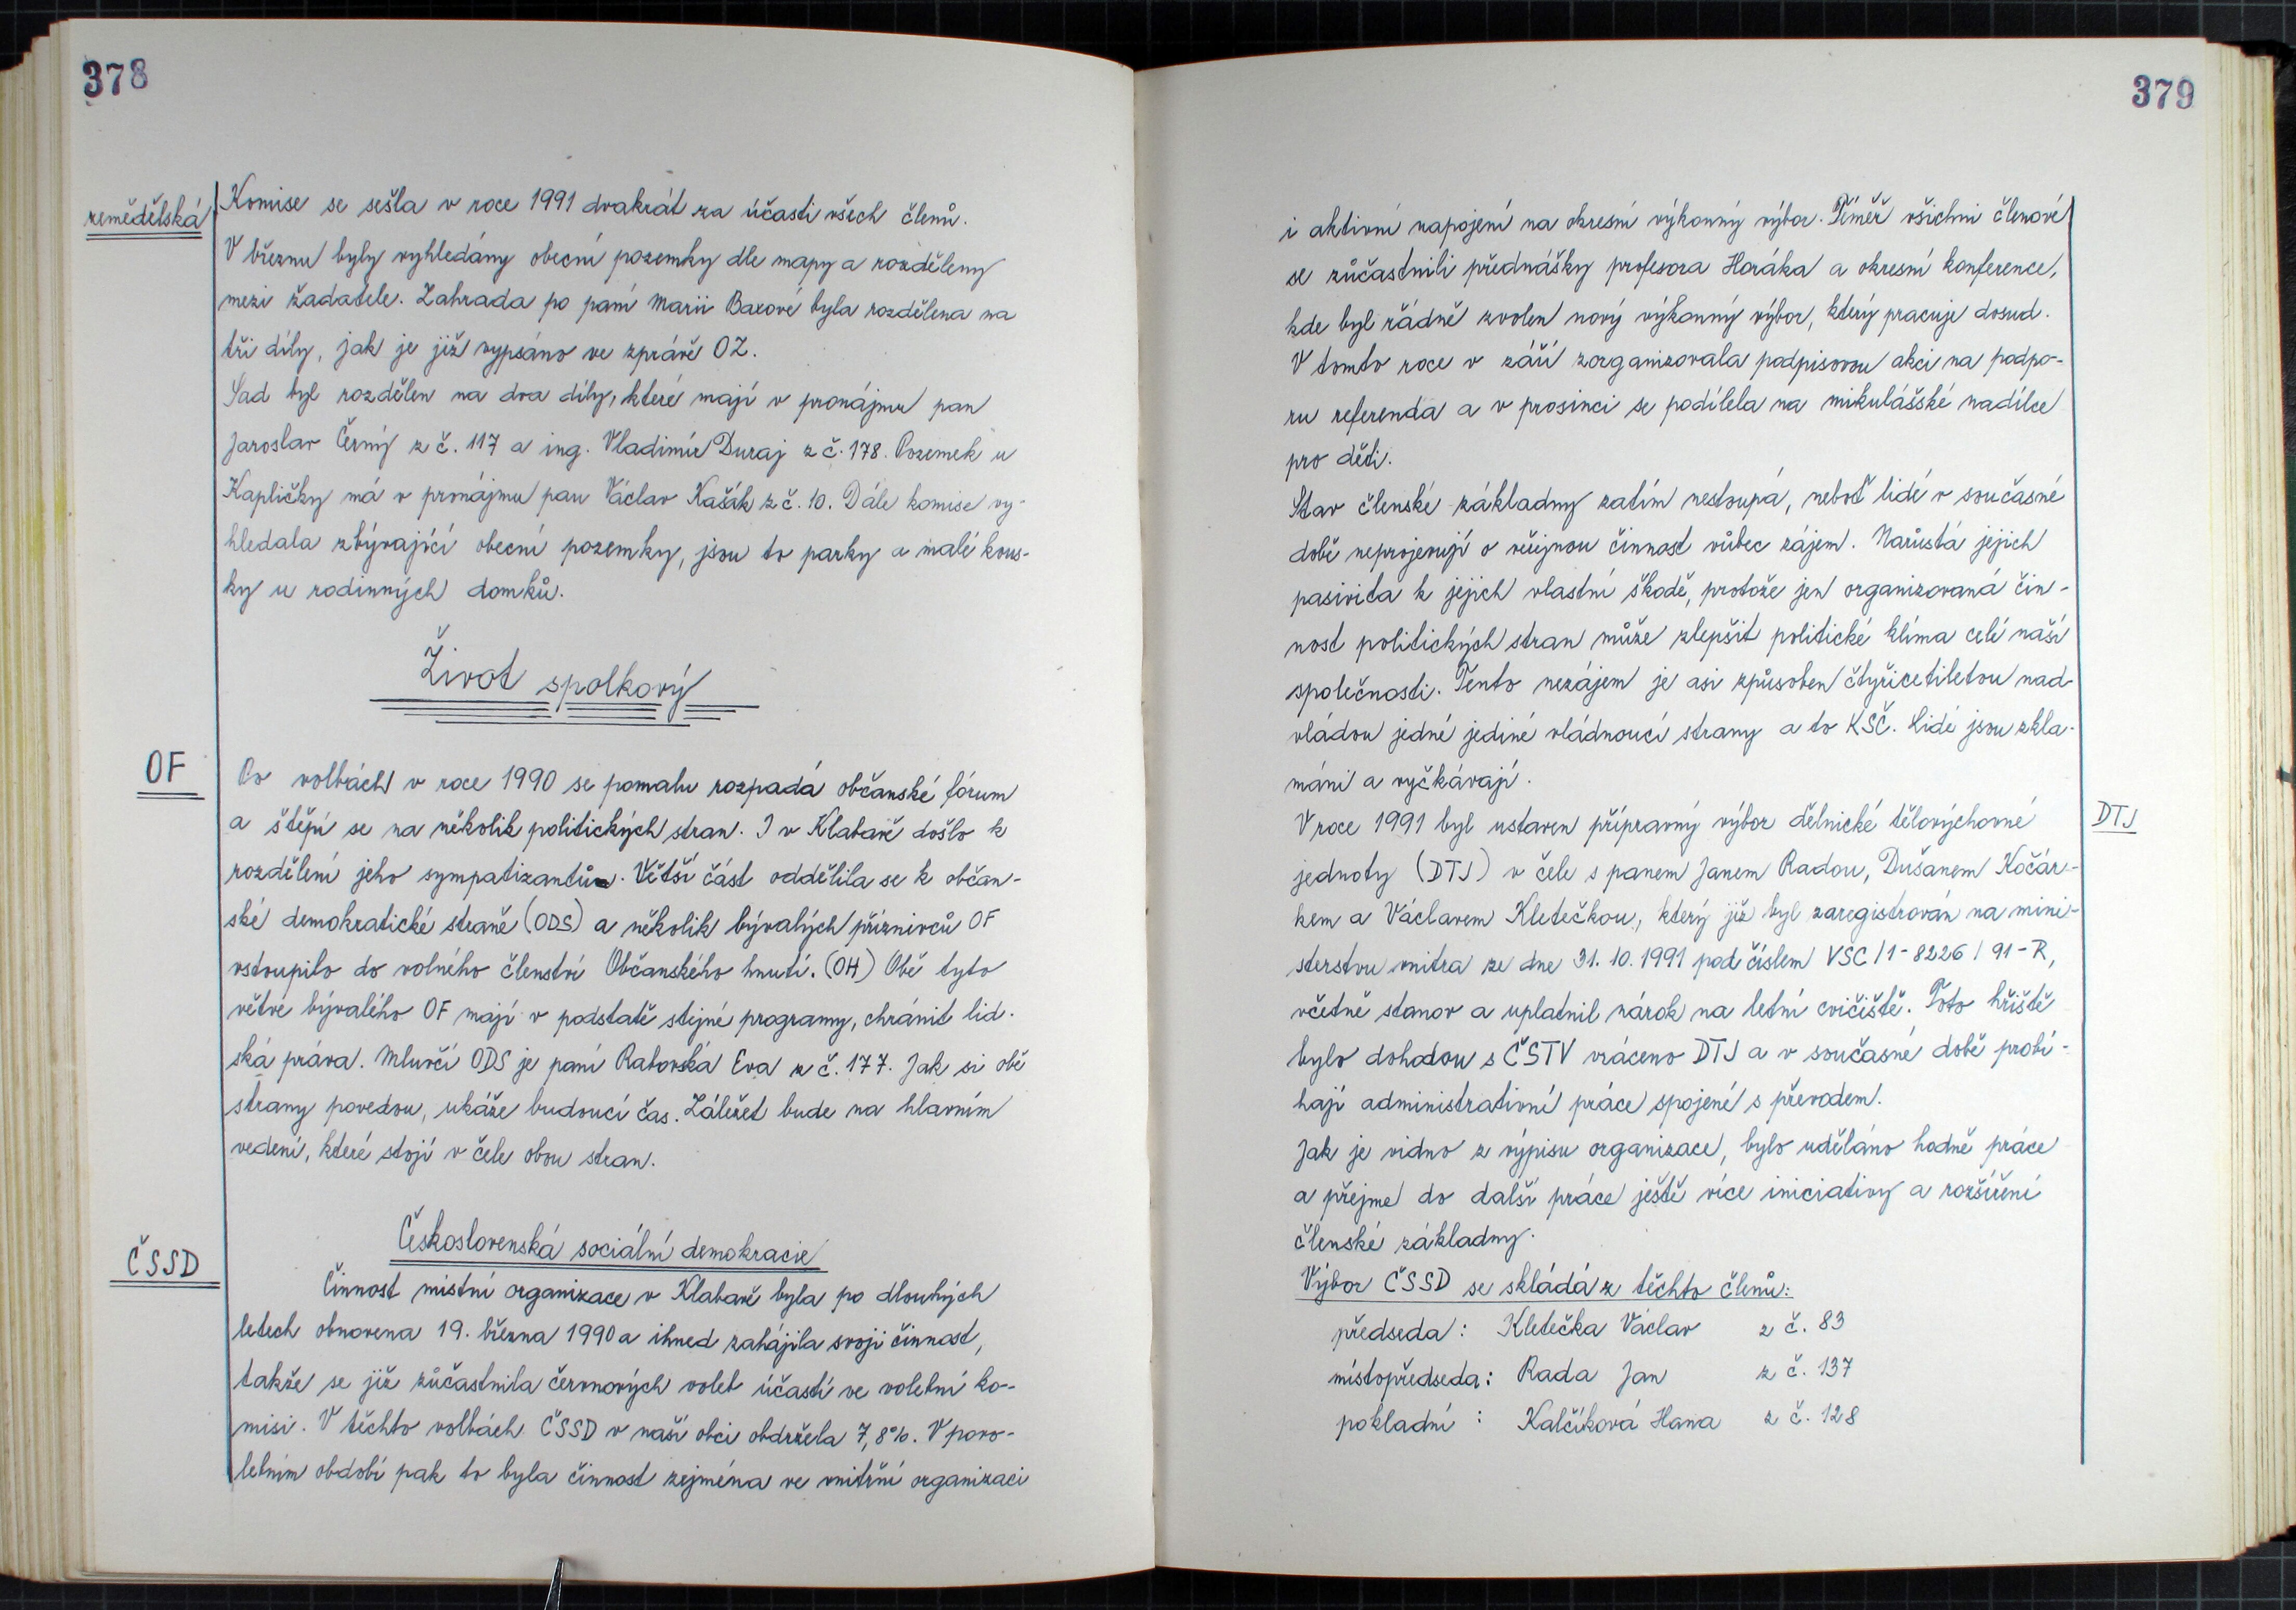 378
zemědělská
Komise se sešla v roce 1991 dvakrát za účasti všech členů.
V březnu byly vyhledány obecní pozemky dle mapy a rozděleny
mezi žadatele. Zahrada po paní Marii Baxové byla rozdělena na
tři díly, jak je již vypsáno ve zprávě OZ.
Sad byl rozdělen na dva díly, které mají v pronájmu pan
Jaroslav Černý z č. 117 a ing. Vladimír Duraj z č. 178. Pozemek u
Kapličky má v pronájmu pan Václav Kašák z č. 10. Dále komise vy-
hledala zbývající obecní pozemky, jsou to parky a malé kous-
ky u rodinných domků.
Život spolkový
OF
Po volbách v roce 1990 se pomalu rozpadá občanské fórum
a štěpí se na několik politických stran. I v Klabavě došlo k
rozdělení jeho sympatizantů. Větší část oddělila se k občan-
ské demokratické straně (ODS) a několik bývalých příznivců OF
vstoupilo do volného členství Občanského hnutí. (OH) Obě tyto
větve bývalého OF mají v podstatě stejné programy, chránit lid-
ská práva. Mluvčí ODS je paní Raborská Eva z č. 177. Jak si obě
strany povedou, ukáže budoucí čas. Záležet bude na hlavním
vedení, které stojí v čele obou stran.
Československá sociální demokracie
ČSSD
Činnost místní organizace v Klabavě byla po dlouhých
letech obnovena 19. března 1990 a ihned zahájila svoji činnost,
takže se již zůčastnila červnových voleb účastí ve volební ko-
misi. V těchto volbách ČSSD v naší obci obdržela 7,8%. V povo-
lebním období pak to byla činnost zejména ve vnitřní organizaci
379
i aktivní napojení na okresní výkonný výbor. Téměř všichni členové
se zůčastnili přednášky profesora Horáka a okresní konference,
kde byl řádně zvolen nový výkonný výbor, který pracuje dosud.
V tomto roce v září zorganizovala podpisovou akci na podpo-
ru referenda a v prosinci se podílela na mikulášské nadílce
pro děti.
Stav členské základny zatím nestoupá, neboť lidé v současné
době neprojevují o veřejnou činnost vůbec zájem. Narůstá jejich
pasivita k jejich vlastní škodě, protože jen organizovaná čin-
nost politických stran může zlepšit politické klíma celé naší
společnosti. Tento nezájem je asi způsoben čtyřicetiletou nad-
vládou jedné jediné vládnoucí strany a to KSČ. Lidé jsou zkla-
máni a vyčkávají.
DTJ
V roce 1991 byl ustaven přípravný výbor dělnické tělovýchovné
jednoty (DTJ) v čele s panem Janem Radou, Dušanem Kočár-
kem a Václavem Kletečkou, který již byl zaregistrován na mini-
sterstvu vnitra ze dne 31. 10. 1991 pod číslem VSC/1-8226/91-R,
včetně stanov a uplatnil nárok na letní cvičiště. Toto hřiště
bylo dohodou s ČSTV vráceno DTJ a v současné době probí-
hají administrativní práce spojené s převodem.
Jak je vidno z výpisu organizace, bylo uděláno hodně práce
a přejme do další práce ještě více iniciativy a rozšíření
členské základny.
Výbor ČSSD se skládá z těchto členů:
předseda: Kletečka Václav z č. 83
místopředseda: Rada Jan z č. 137
pokladní : Kalčíková Hana z č. 128